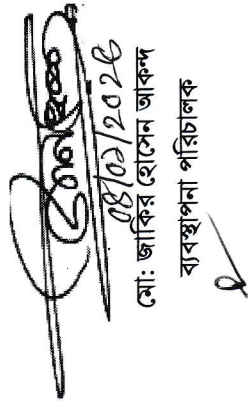 ০৪/০১/২০২৬
মো: জাকির হোসেন আকন্দ
ব্যবস্থাপনা পরিচালক